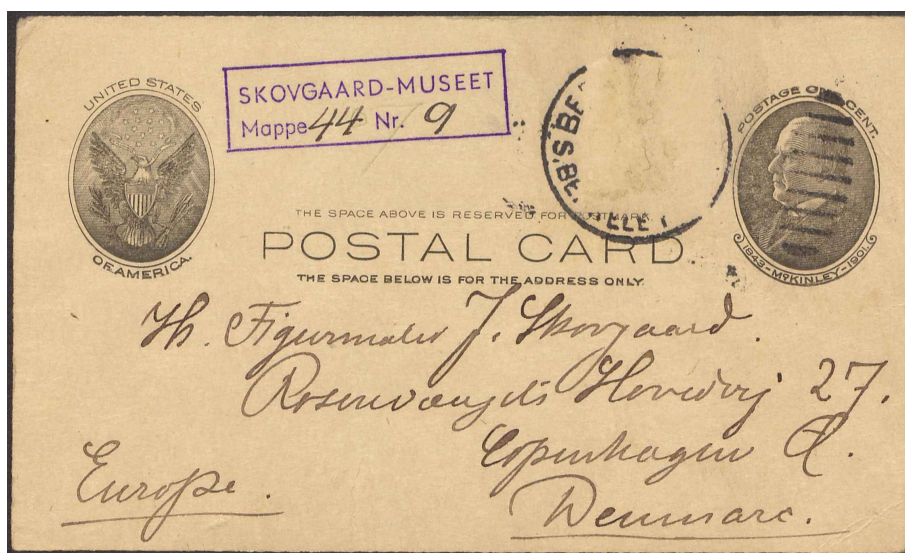 UNITED STATES
OF AMERICA.
SKOVGAARD-MUSEET
Mappe 44 Nr. 9
POSTAGE ONE CENT.
1843-McKINLEY-1901.
THE SPACE ABOVE IS RESERVED FOR POSTMARK.
POSTAL CARD
THE SPACE BELOW IS FOR THE ADDRESS ONLY.
Hr. Figurmaler J. Skovgaard.
Rosenvængets Hovedvej 27.
Copenhagen Ø.
Europe.
Denmark.